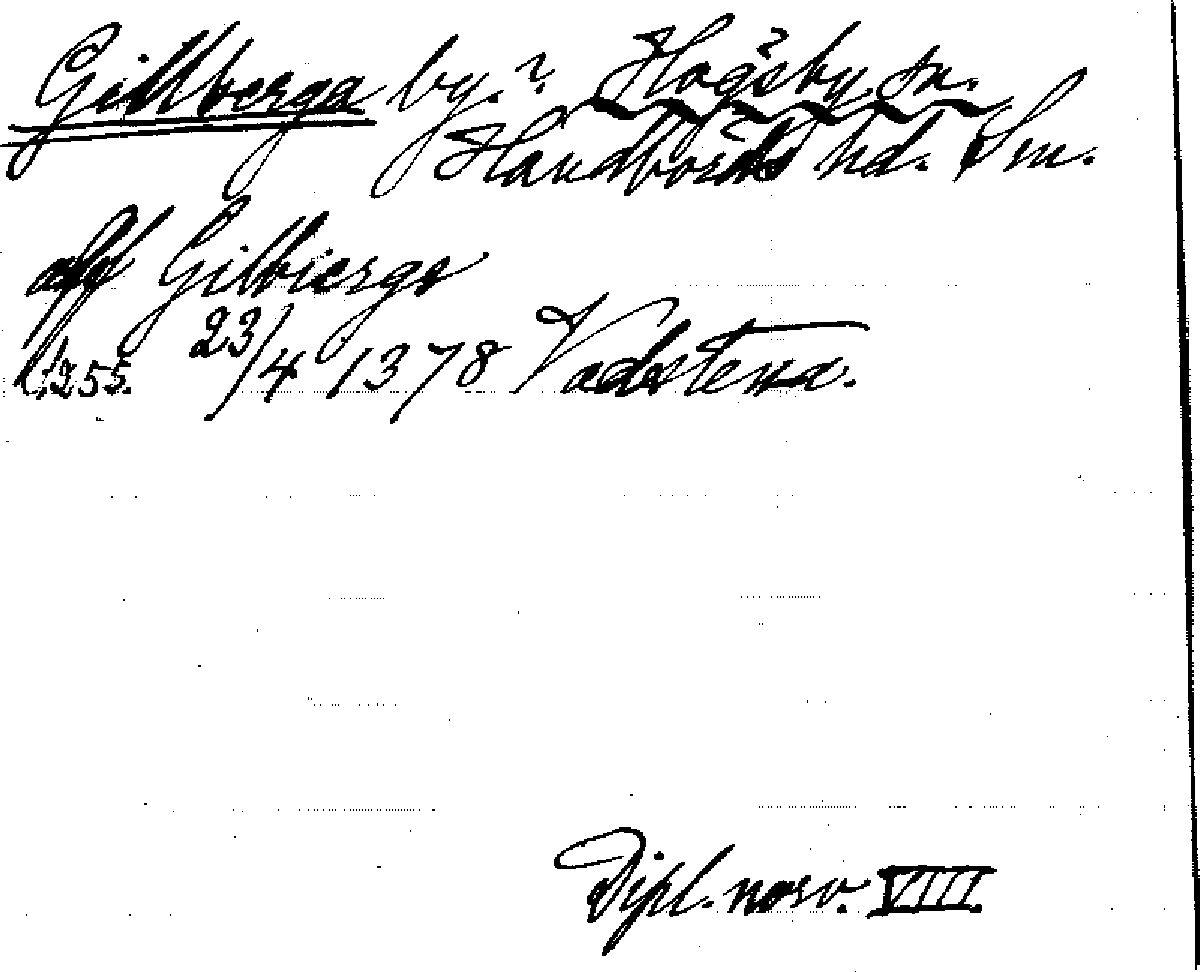 Gillberga by.? Högsby sn.
Handbörds hd. Sm.
aff Gilbiergs
s. 255. 23/4 1378 Vadstena.
Dipl. norv. VIII.